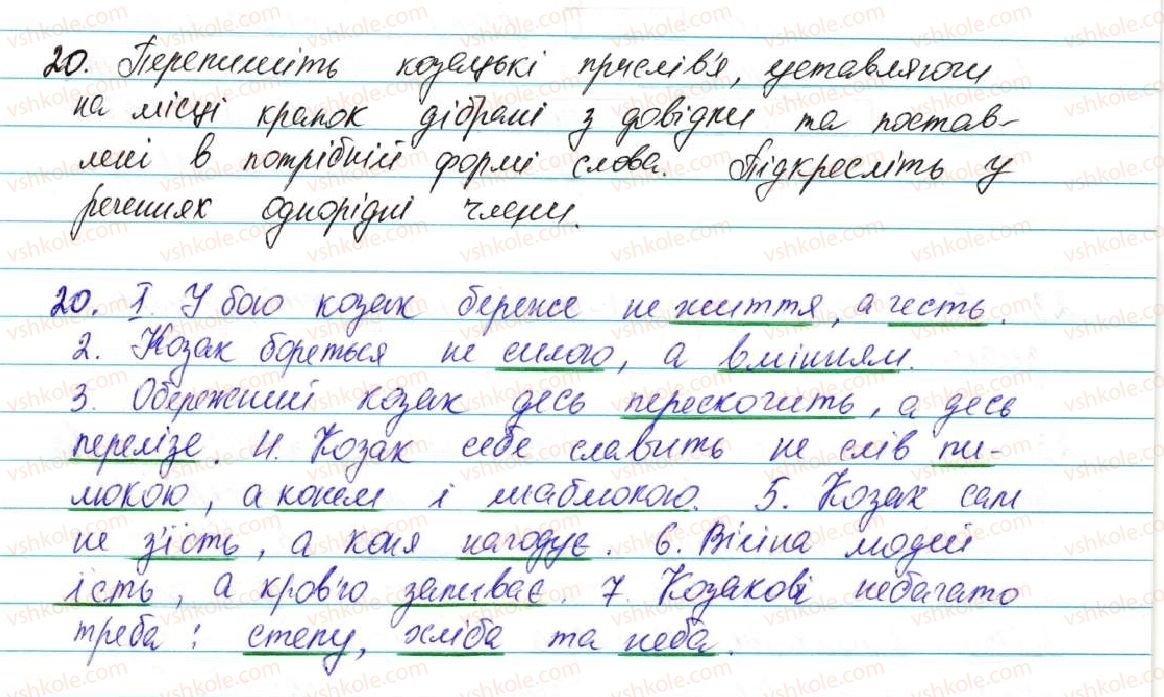 20. Перепишіть козацькі прислів'я, уставляючи
на місці крапок дібрані з довідки та постав-
лені в потрібній формі слова. Підкресліть у
реченнях однорідні члени.
20. 1. У бою козак береже не життя, а честь.
2. Козак бореться не силою, а вмінням.
3. Обережний козак десь перескочить, а десь
перелізе. 4. Козак себе славить не слів пи-
люкою, а конем і шаблюкою. 5. Козак сам
не з'їсть, а коня нагодує. 6. Війна людей
їсть, а кров'ю запиває. 7. Козакові небагато
треба: степу, хліба та неба.